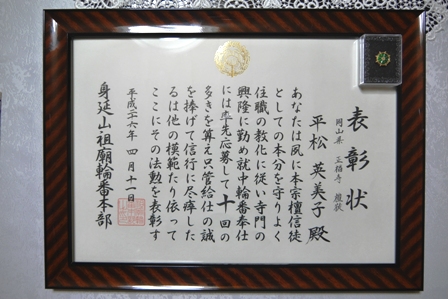 表彰状
岡山県 正福寺 檀徒
平松 英美子 殿
あなたは夙に本宗檀信徒
としての本分を守りよく
住職の教化に従い寺門の
興隆に勤め就中輪番奉仕
には率先応募して十回の
多きを算え只管給仕の誠
を捧げて信行に尽瘁した
るは他の模範たり依って
ここにその法勲を表彰す
平成二十六年 四月十一日
身延山祖廟輪番本部